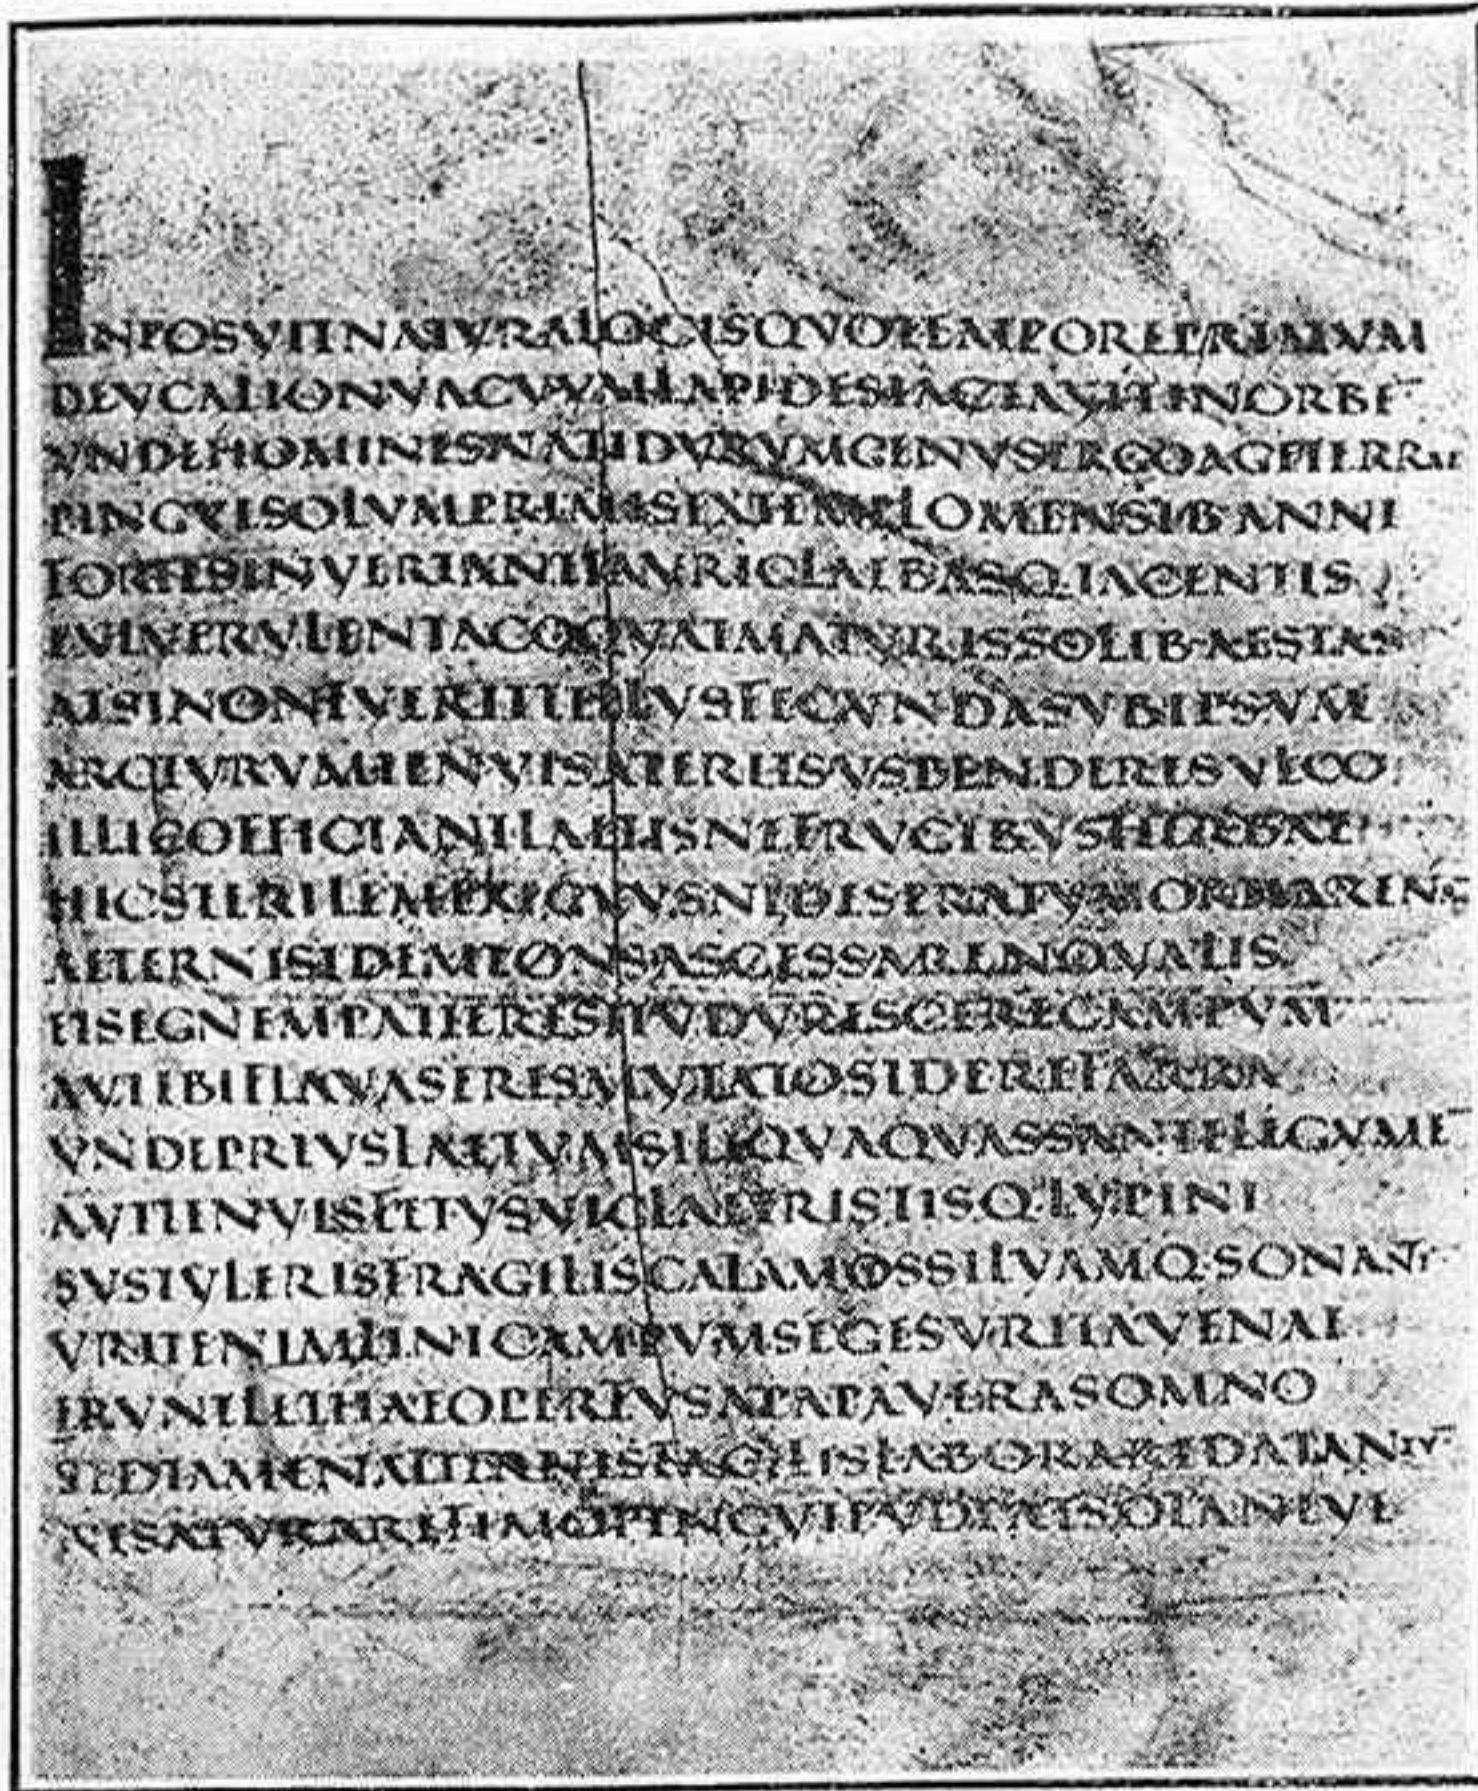 INPOSVITNATVRALOCISQVOTEMPOREPRIMVM
DEVCALIONVACVVMLAPIDESIACTAVITINORBE
VNDEHOMINESNATIDVRVMGENVSERGOAGETERRAE
PINGVESOLVMPRIMISEXTEMPLOMENSIB·ANNI
FORTESINVERTANTTAVRIGLAEBASQ·IACENTIS
PVLVERVLENTACOQVATMATVRISSOLIB·AESTAS
ATSINONFVERITTELLVSFECVNDASVBIPSVM
ARCTVRVMTENVISATERITSVSPENDERESVLCO
ILLICOFFICIANTLAETISNEFRVGIBVSHERBAE
HICSTERILEMEXIGVVSNEDESERATVMORHARENA
AETERNISIDEMTONSASCESSARENOVALIS
ETSEGNEMPATIERESITVDVRESCERECAMPVM
AVTIBIFLAVASERESMVTATOSIDEREFARRA
VNDEPRIVSLAETVMSILIQVAQVASSANTELEGVME
AVTTENVISFETVSVICIAETRISTISQ·LVPINI
SVSTVLERISFRAGILISCALAMOSSILVAMQ·SONANTE
VRITENIMLINICAMPVMSEGESVRITAVENAE
VRVNTLETHAEOPERFVSAPAPAVERASOMNO
SEDTAMENALTERNISFACILISLABORARIDATANTV
NESATVRAREFIMOPINGVIPVDEATSOLANEVE